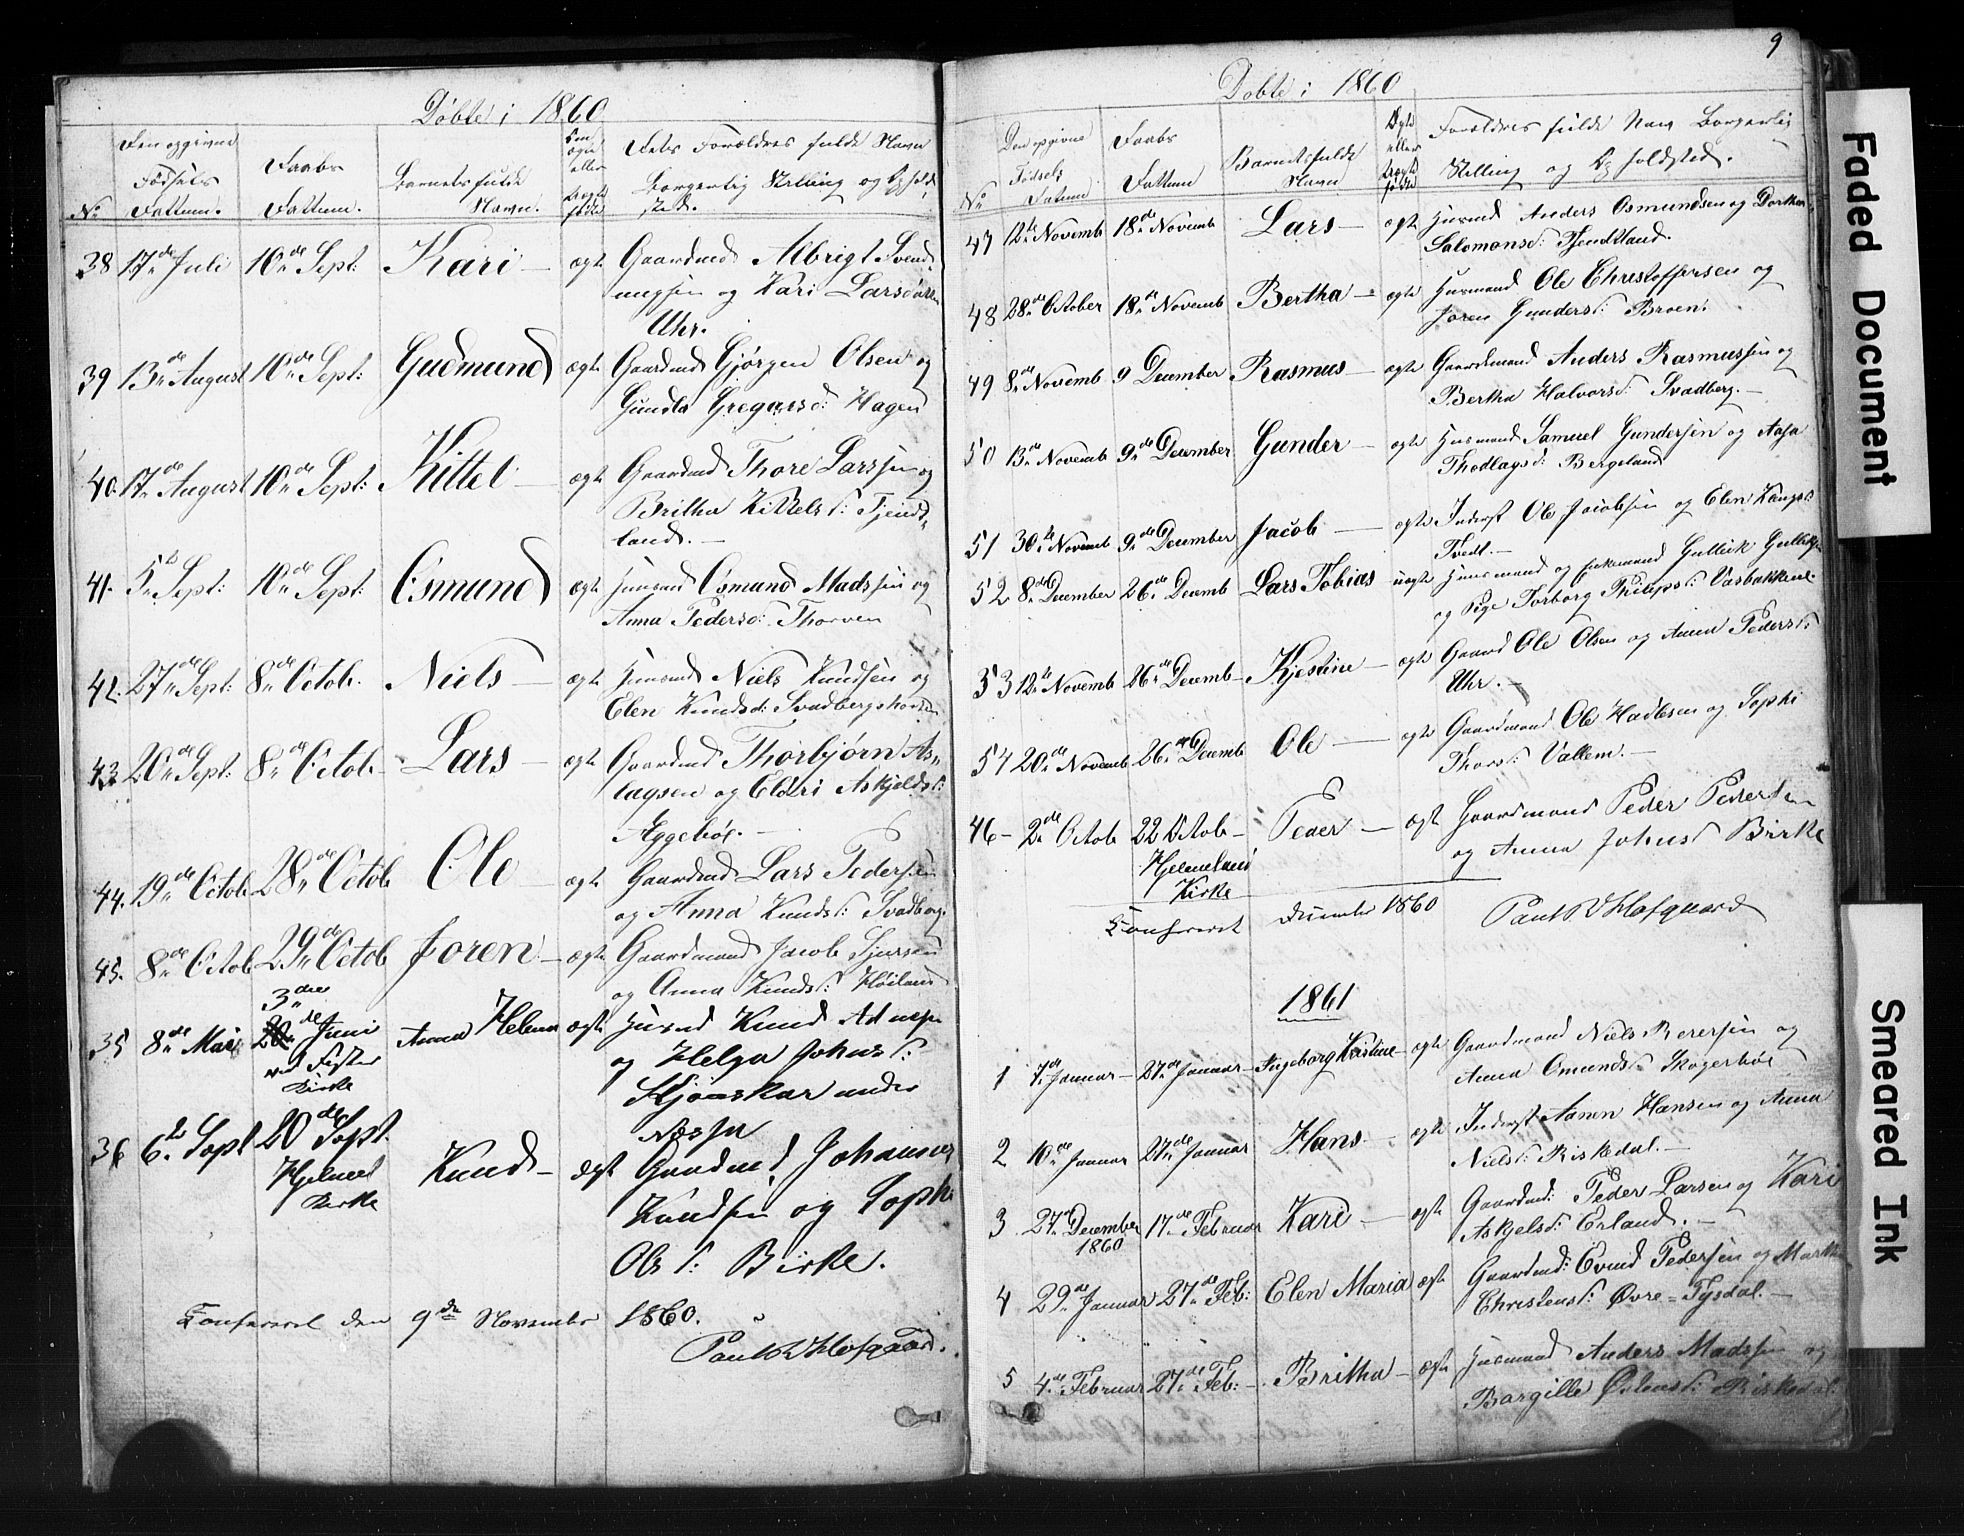 Døbte i 1860
No
Den opgivne Fødsels Dattum.
Daabs Dattum.
Barnets fulde Navn.
Om ægte eller uægte født
Dets Forældres fulde Navn
Borgerlig Stilling og Ophold
sted.
38 17de Juli 10de Sept: Kari — ægte Gaardmd Albrigt Svend
ungsen og Kari Larsdatter
Uhr.
39 13de August 10de Sept: Gudmund ægte Gaardmd Gjørgen Olsen og
Gunda Gregarsd: Hagen
40. 17de August 10de Sept: Kittel — ægte Gaardmd Thore Larssen og
Britha Kittelsd: Tjend
land. —
41. 5te Sept: 10de Sept: Osmund ægte Husmd Osmund Madssen og
Anna Pedersd: Thorven
42. 27de Sept: 8de Octob. Niels — ægte Husmd Niels Knudsen og
Elen Knudsd: Svadberg
43 20de Sept: 8de Octob — Lars — ægte Gaardmd Thorbjørn As,
lagsen og Eldri Askjeldsd:
Aggebøe. —
44. 19de Octob 28de Octob Ole — ægte Gaardmd Lars Pedersen
og Anna Knudsd: Svadberg.
45. 8de Octob 29de Octob Joren — ægte Gaardmand Jacob Sjursen
og Anna Knudsd: Høiland
35 8de Mai 3die 20de Juni ved Fister Kirke Anna Helena ægte Husmd Knud
og Helga Johnsd:
under
36 6te Sept 20de Sept. Hjelmel Kirke Knud — ægt Gaardmd, Johannes
Knudsen og Sophi
Olsd: Birke.
Confereret den 9de November 1860.
Paul V Hofgaard.
9
Døbte i 1860
No
Den opgivne Fødsels Datum
Daabs Dattum
Barnets fulde Navn
Ægte eller uægte fødte
Forældres fulde Navn Borgerlig
Stilling og Opholdsted.
47 12te Novemb 18de Novemb Lars — ægte Husmd Anders Osmundsen og Dorthea
Salomonsd: Tjentland.
48 28de October 18de Novemb Bertha — ægte Husmand Ole Christoffersen og
Joren Gundersd: Broen.
49 8de Novemb 9 December Rasmus — ægte Gaardmand Anders Rasmussen og
Bertha Halvorsd: Svadberg. —
50 13de Novemb 9de December Gunder — ægte Husmand Samuel Gundersen og Aasa
Thorlagsd: Bergeland
51 30te Novemb 9de December Jacob — ægte Inderst Ole Jacobsen og Elen
Tvedt. —
52 8de December 26de Decemb Lars Tobias — uægte Husmand og Enkemand Gullick
og Pige Torborg Philipsd: Vasbakken.
53 12te Novemb 26de Decemb — Kjestine — ægte Gaard Ole Olsen og Anna Pedersd:
Uhr. —
54 20de Novemb 26de Decemb Ole — ægte Gaardmand Ole Hadlesen og Sophi
Thorsd: Vallem. —
46 — 2de Octob 22 Octob — Hjelmeland Kirke Peder — ægte Gaardmand Peder Pedersen
og Anna Johnsd Birke
Confereret December 1860 Paul V Hofgaard
1861
1 7de Januar — 27de Januar — Ingeborg Kristine — ægte Gaardmand Niels Perersen og
Anna Omundsd: Skogerbøe
2 10de Januar 27de Januar Hans — ægte Inderst Aamen Hansen og Anna
Nielsd: Riskedal. —
3 27de December 1860 17de Februar Kari — ægte Gaardmd: Peder Larsen og Kari
Askjelsd: Erland. —
4 29de Januar 27de Feb: Elen Maria ægte Gaardmd: Evind Pedersen og Martha
Christensd: Øvre-Tysdal. —
5 4de Februar 27de Feb: — Britha — ægte Husmand Anders Madssen og
Bargille Riskedal.
Faded Document
Smeared Ink